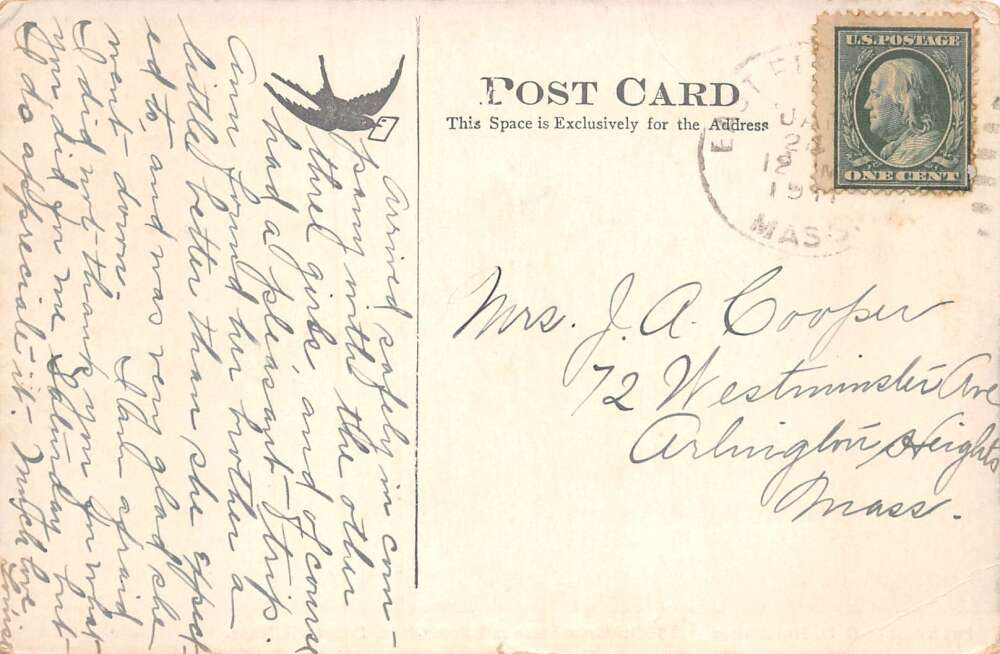 Arrived safely in com-
pany with the other
three girls, and of course
had a pleasant trip
Ann found her brother a
little better than she expect-
ed to, and was very glad she
went down. I am afraid
I did not thank you for what
you did for me Saturday but
I do appreciate it. Much love
Louise
POST CARD
This Space is Exclusively for the Address
U.S. POSTAGE
ONE CENT
JAN
24
12 M
MASS
Mrs. J. A. Cooper
72 Westminster Ave
Arlington Heights
Mass.